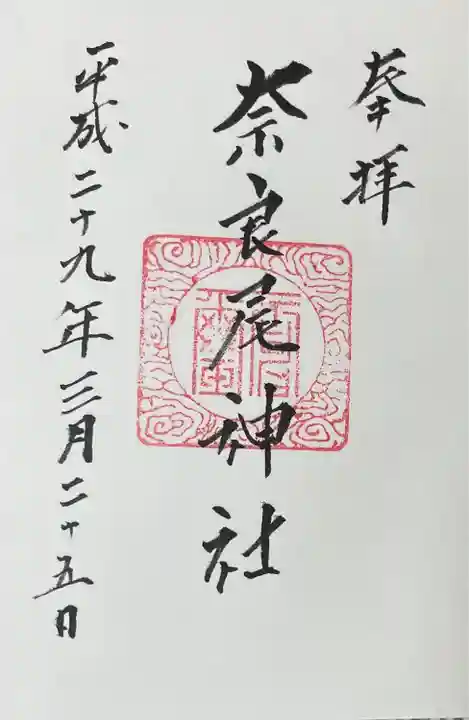 奉拝
奈良尾神社
平成二十九年三月二十五日